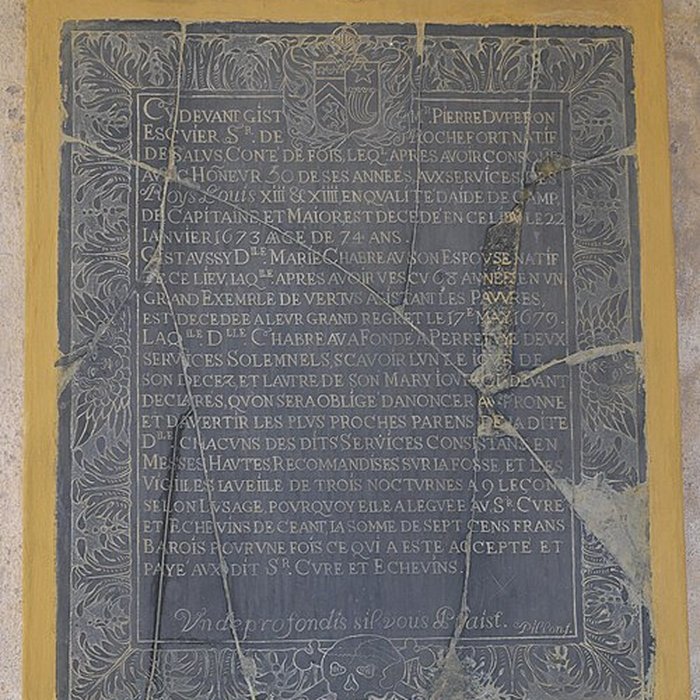 CY DEVANT GIST MR. PIERRE DVPERON
ESCVIER SR. DE ROCHEFORT NATIF
DE SALVS, CONTÉ DE FOIS, LEQL. APRES AVOIR CONSOM
AVEC HONEVR 50 DE SES ANNEES AVX SERVICES DES
Roys Louis XIII & XIIII, EN QVALITÉ D'AIDE DE CAMP,
DE CAPITAINE ET MAIOR EST DECEDÉ EN CE LIEV LE 22
IANVIER 1673 AAGE DE 74 ANS.
GIST AVSSY DILE MARIE CHABREAV SON ESPOVSE NATIF
DE CE LIEV, LAQILE APRES AVOIR VESCV 68 ANNEES EN VN
GRAND EXEMPLE DE VERTVS ASISTANT LES PAVVRES,
EST DECEDEE A LEVR GRAND REGRET LE 17E MAY 1679.
LAQILE DLLE CHABREAV A FONDÉ A PERPETVYE DEVX
SERVICES SOLEMNELS, SCAVOIR L'VN LE IOVR DE
SON DECEZ, ET L'AVTRE DE SON MARY IOVR CY DEVANT
DECLARES, QV'ON SERA OBLIGÉ D'ANONCER AV PRONNE
ET D'AVERTIR LES PLVS PROCHES PARENS DE LADITE
DILE CHACVNS DES DITS SERVICES CONSISTANS EN
MESSES HAVTES RECOMMANDISES SVR LA FOSSE, ET LES
VIGILES LA VEILE DE TROIS NOCTVRNES A 9 LECONS
SELON L'VSAGE, POVRQVOY EILE A LEGVÉE AV SR. CVRÉ
ET ECHEVINS DE CEANT, LA SOMME DE SEPT CENS FRANS
BAROIS POVR VNE FOIS CE QVI A ESTÉ ACCEPTÉ ET
PAYÉ AVXDIT SR. CVRE ET ECHEVINS.
Vn de profondis s'il vous Plaist.